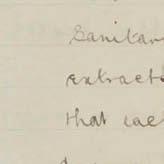 Sanitar
extracts
that cac